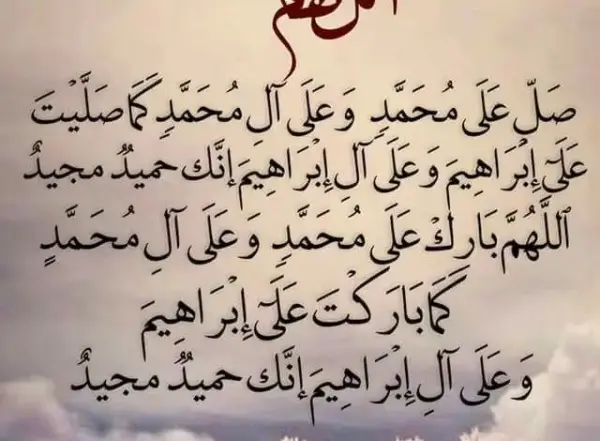 صَلِّ عَلَى مُحَمَّدٍ وَعَلَى آلِ مُحَمَّدٍ كَمَا صَلَّيْتَ
عَلَى إِبْرَاهِيمَ وَعَلَى آلِ إِبْرَاهِيمَ إِنَّكَ حَمِيدٌ مَجِيدٌ
اللَّهُمَّ بَارِكْ عَلَى مُحَمَّدٍ وَعَلَى آلِ مُحَمَّدٍ
كَمَا بَارَكْتَ عَلَى إِبْرَاهِيمَ
وَعَلَى آلِ إِبْرَاهِيمَ إِنَّكَ حَمِيدٌ مَجِيدٌ